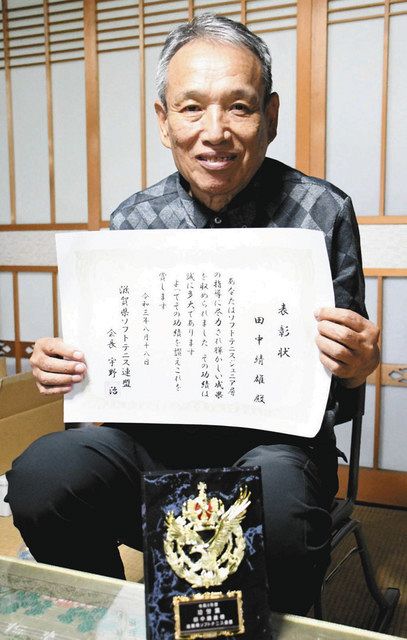 表彰状
田中靖雄殿
あなたはソフトテニスジュニア層
の指導に尽力され輝かしい成果
を収められました その功績は
誠に多大であります
よってその功績を讃えこれを
賞します
令和三年八月十八日
滋賀県ソフトテニス連盟
会長 宇野 治
功労賞